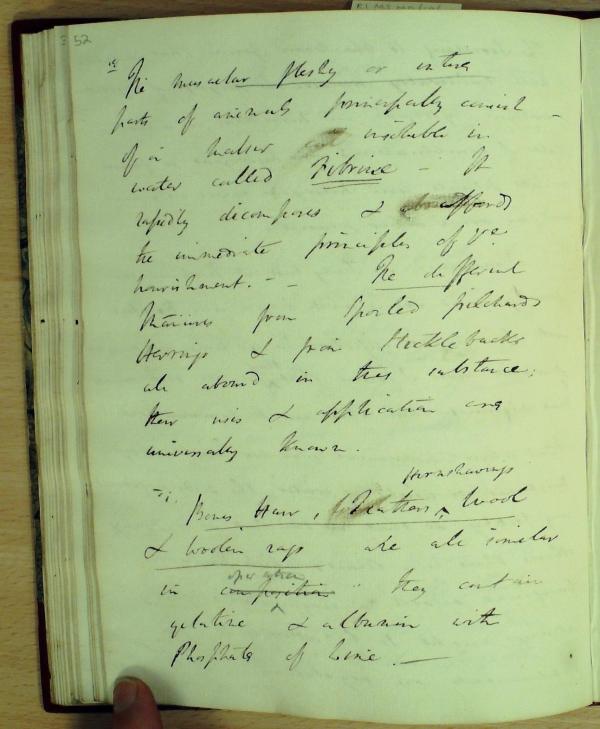 52
The muscular fleshy or entire
parts of animals principally consist
of a matter insoluble in
water called Fibrine – It
rapidly decomposes & affords
the immediate principles of Ve.
nourishment. – The different
Manures from spoiled pilchards
Herrings & from Stickle backs
all abound in this substance;
their uses & application are
universally known.
Hornshavings
Bones, Hair, Feathers, Wool
& woolen rags are all similar
operation
in composition: they contain
gelatine & albumin with
Phosphate of Lime. —